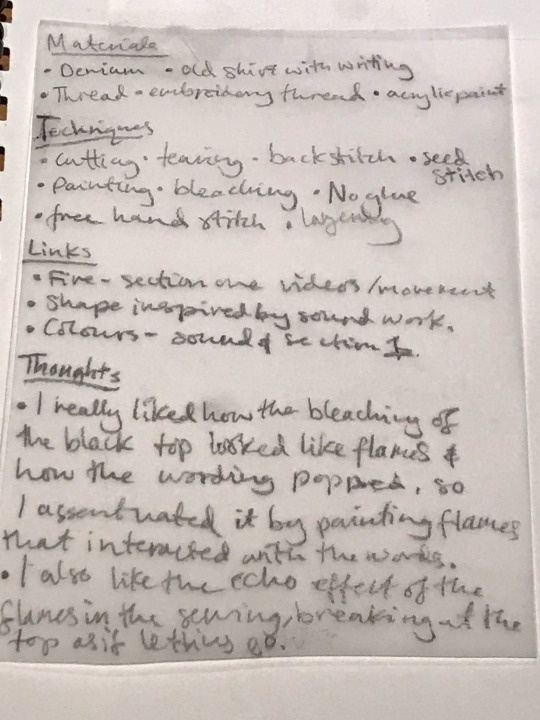 Materials
• Denium • old shirt with writing
• Thread - embroidery thread • acrylic paint
Techniques
• cutting • tearing • backstitch • seed
stitch
• painting • bleaching • No glue
• free hand stitch • layering
Links
• Fire - section one videos/movement
• Shape inspired by sound work.
• Colours - sound of section 1.
Thoughts
• I really liked how the bleaching of
the black top looked like flames &
how the wording popped, so
I assentuated it by painting flames
that interacted with the words.
• I also like the echo effect of the
flames in the sewing, breaking at the
top as if letting go.